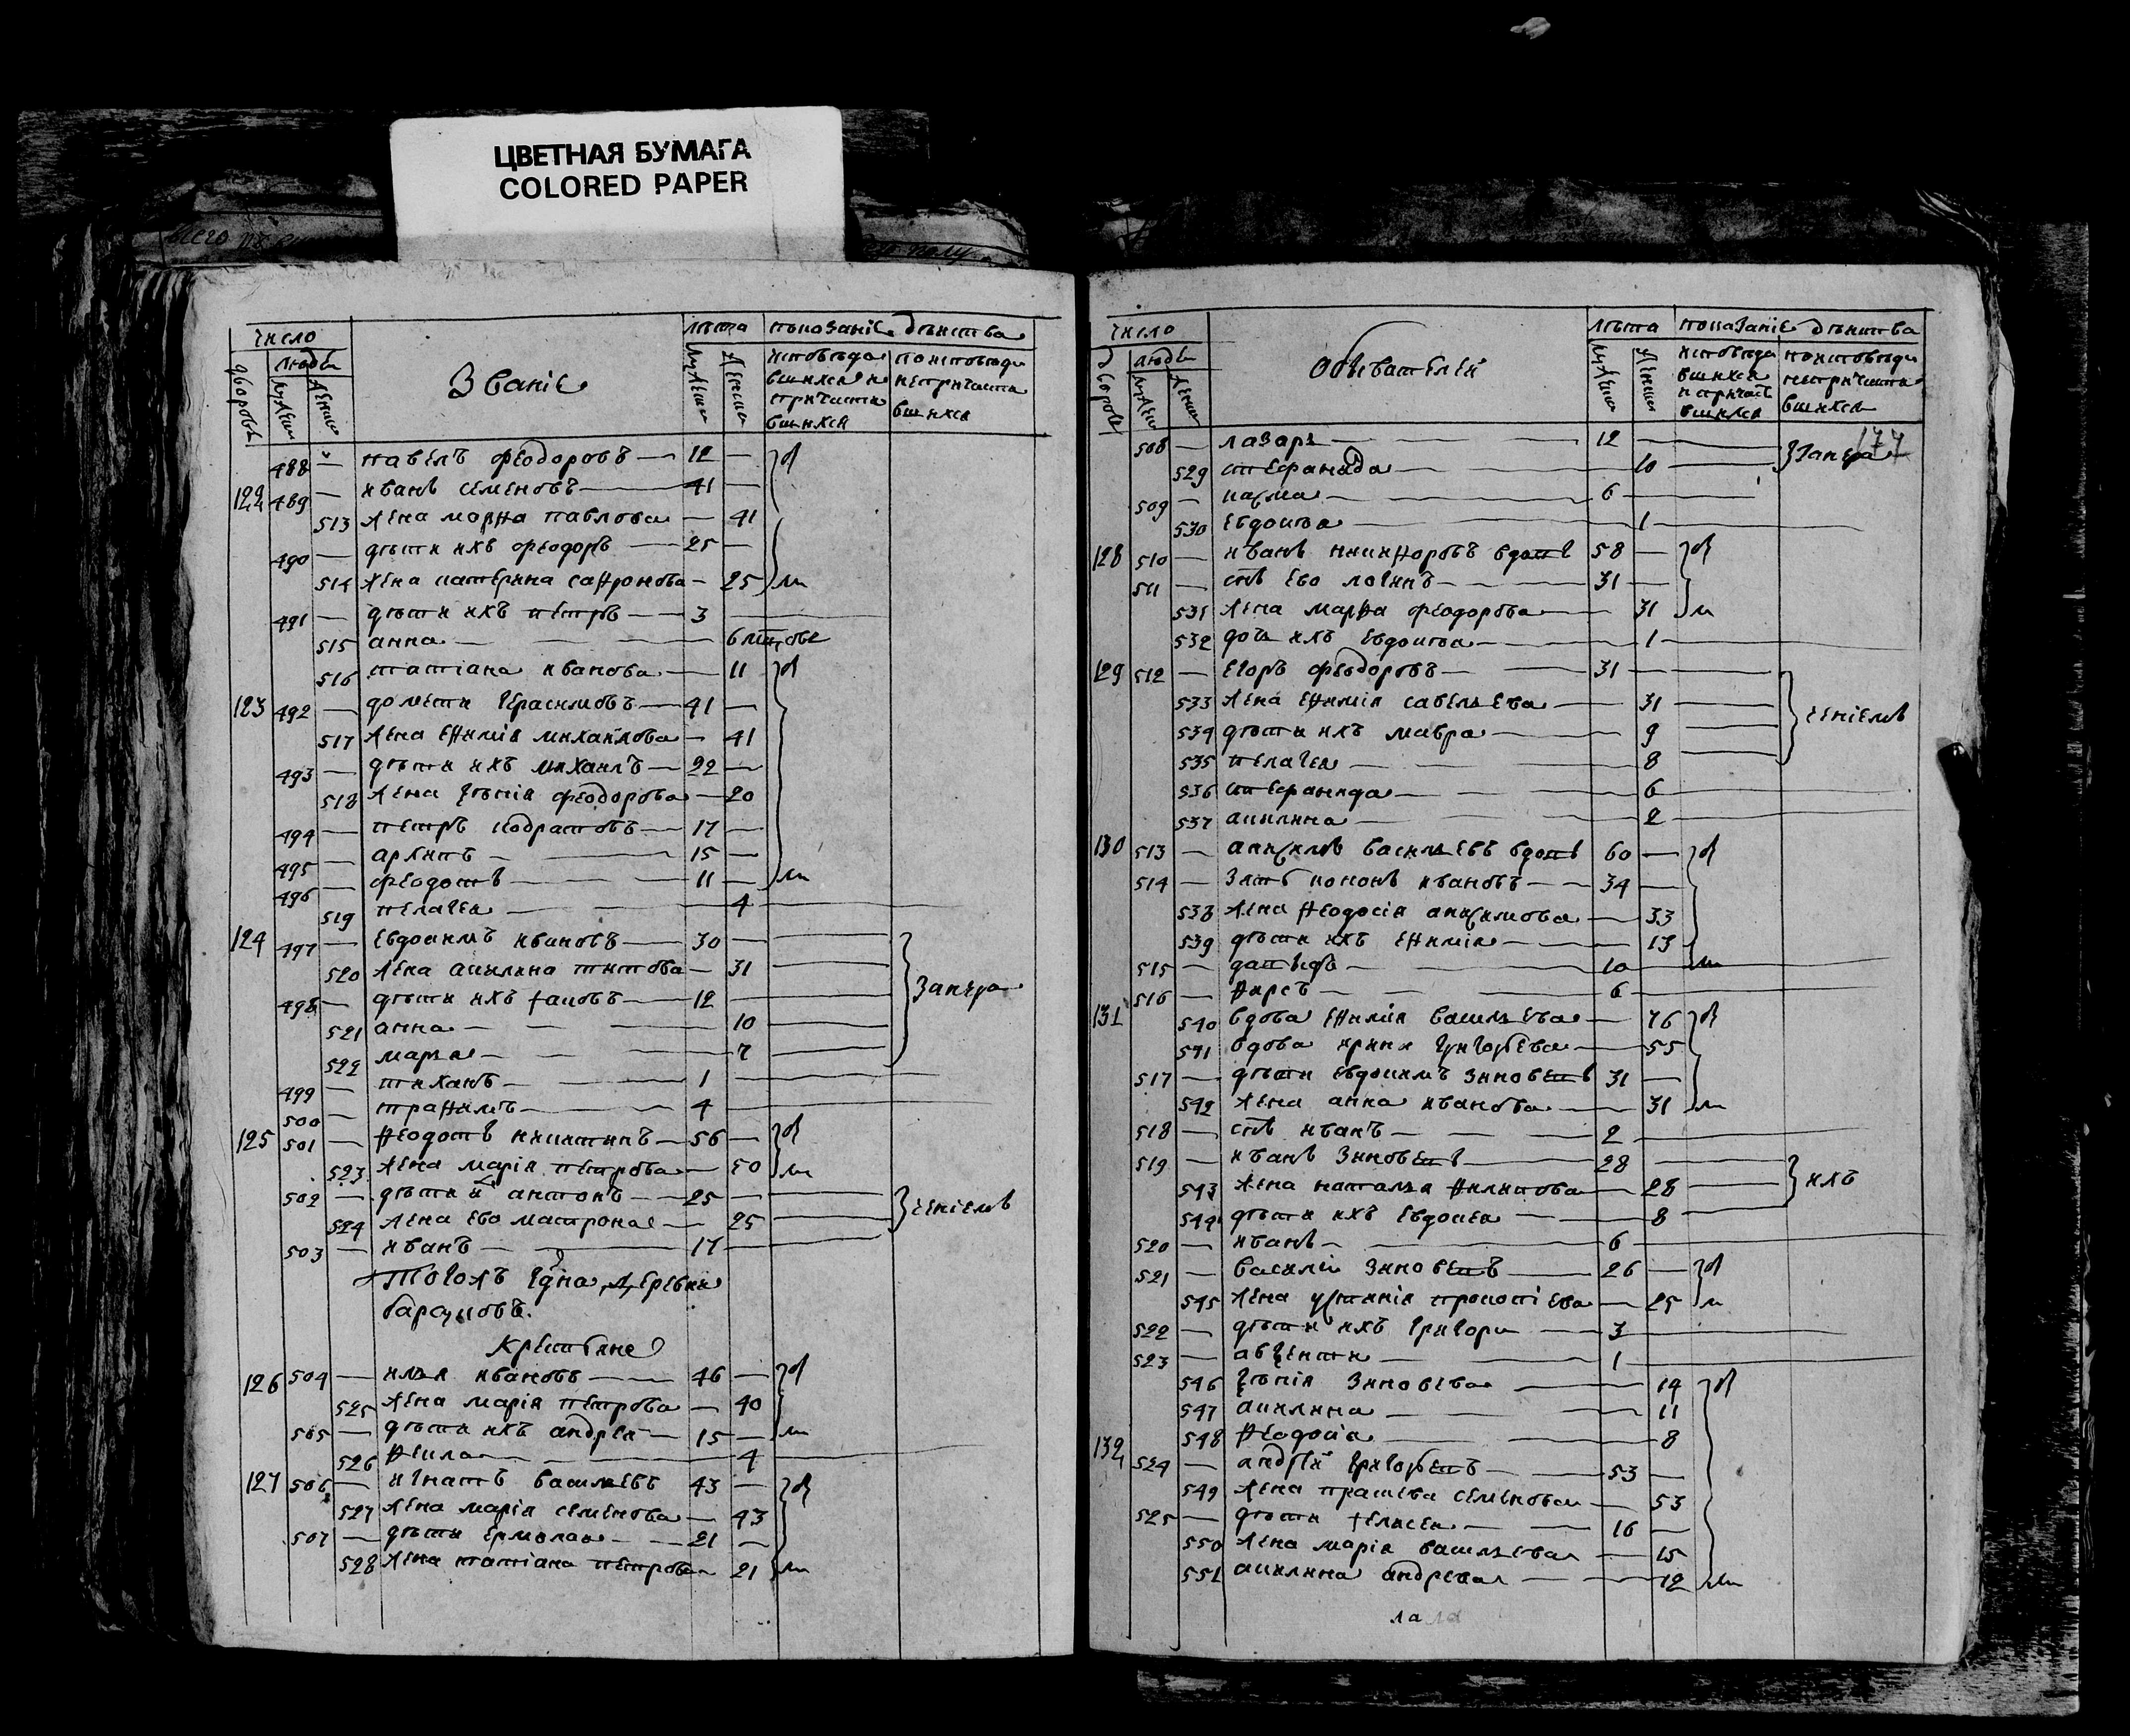 ЦВЕТНАЯ БУМАГА
COLORED PAPER
число
лѣта показаніе дѣиства
дворовъ
людеи
мужеска женска
Званіе
исповѣдавшихся и причастившихся
по исповѣди непричаствшихся
488 — павелъ феодоровъ — 12 —
122 489 — иванъ семеновъ — 41 —
513 жена марѳа павлова — 41
490 — дѣти ихъ феодоръ — 25 —
514 жена катерина саѳронова — 25
491 — дѣти ихъ петръ — 3
515 анна — 6
516 татіана иванова — 11
123 492 — домети герасимовъ — 41 —
517 жена еѳимія михаилова — 41
493 — дѣти ихъ михаилъ — 22 —
518 жена феодорова — 20
494 — петръ кодратовъ — 17 —
495 — архипъ — 15 —
496 — феодотъ — 11 —
519 пелагея — 4
124 497 — евдокимъ ивановъ — 30 —
520 жена акилина титова — 31
498 — дѣти ихъ іаковъ — 12
521 анна — 10
522 марья — 7
499 — тиханъ — 1
500 — траѳимъ — 4
125 501 — ѳеодотъ никитинъ — 56 —
523 жена марія петрова — 50
502 — дѣти и антонъ — 25 —
524 жена ево матрона — 25
503 — иванъ — 17
тогожъ една деревни
барсуковъ.
Крестьяне
126 504 — илья ивановъ — 46 —
525 жена марія петрова — 40
505 — дѣти ихъ андреи — 15 —
526 ѳекла — 4
127 506 — игнатъ васильевъ 43 —
527 жена марія семенова — 43
507 — дѣти ермолаи — 21 —
528 жена татіана петрова — 21
число
лѣта показаніе дѣиства
дворовъ
людеи
мужеска женска
обывателей
исповѣдавшихся и причастившихся
по исповѣди непричаствшихся
177
508 — лазарь — 12
529 стефанида — 10
509 — касма — 6
530 евдокѣа — 1
128 510 — иванъ никиѳоровъ вдовъ 58 —
511 — снъ ево логинъ — 31 —
531 жена марѳа феодорова — 31
532 дочь ихъ евдокѣа — 1
129 512 — егоръ феодоровъ — 31 —
533 жена еѳимія савельева — 31
534 дѣти ихъ мавра — 9
535 пелагея — 8
536 стефанида — 6
537 акилина — 2
130 513 — анисимъ васильевъ вдовъ 60 —
514 — зять кононъ ивановъ — 34 —
538 жена ѳеодосія анисимова — 33
539 дѣти ихъ еѳимія — 13
515 — давыдъ — 10
516 — ѳирсъ — 6
131 540 вдова еѳимія васильева — 76
541 вдова ирина григорьева — 55
517 — дѣти евдокимъ зиновевъ 31 —
542 жена анна иванова — 31
518 — снъ иванъ — 2
519 — иванъ зиновевъ — 28
543 жена наталья филипова — 28
544 дѣти ихъ евдокея — 8
520 — иванъ — 6
521 — василіи зиновевъ — 26 —
545 жена устинія прокопіева — 25
522 — дѣти ихъ григори — 3
523 — авксенти — 1
546 зиновева — 14
547 акилина — 11
548 ѳеодосіа — 8
132 524 — андреи григоревъ — 53 —
549 жена праскева семенова — 53
525 — дѣти елисеи — 16 —
550 жена марія васильева — 15
551 акилина андреева — 12